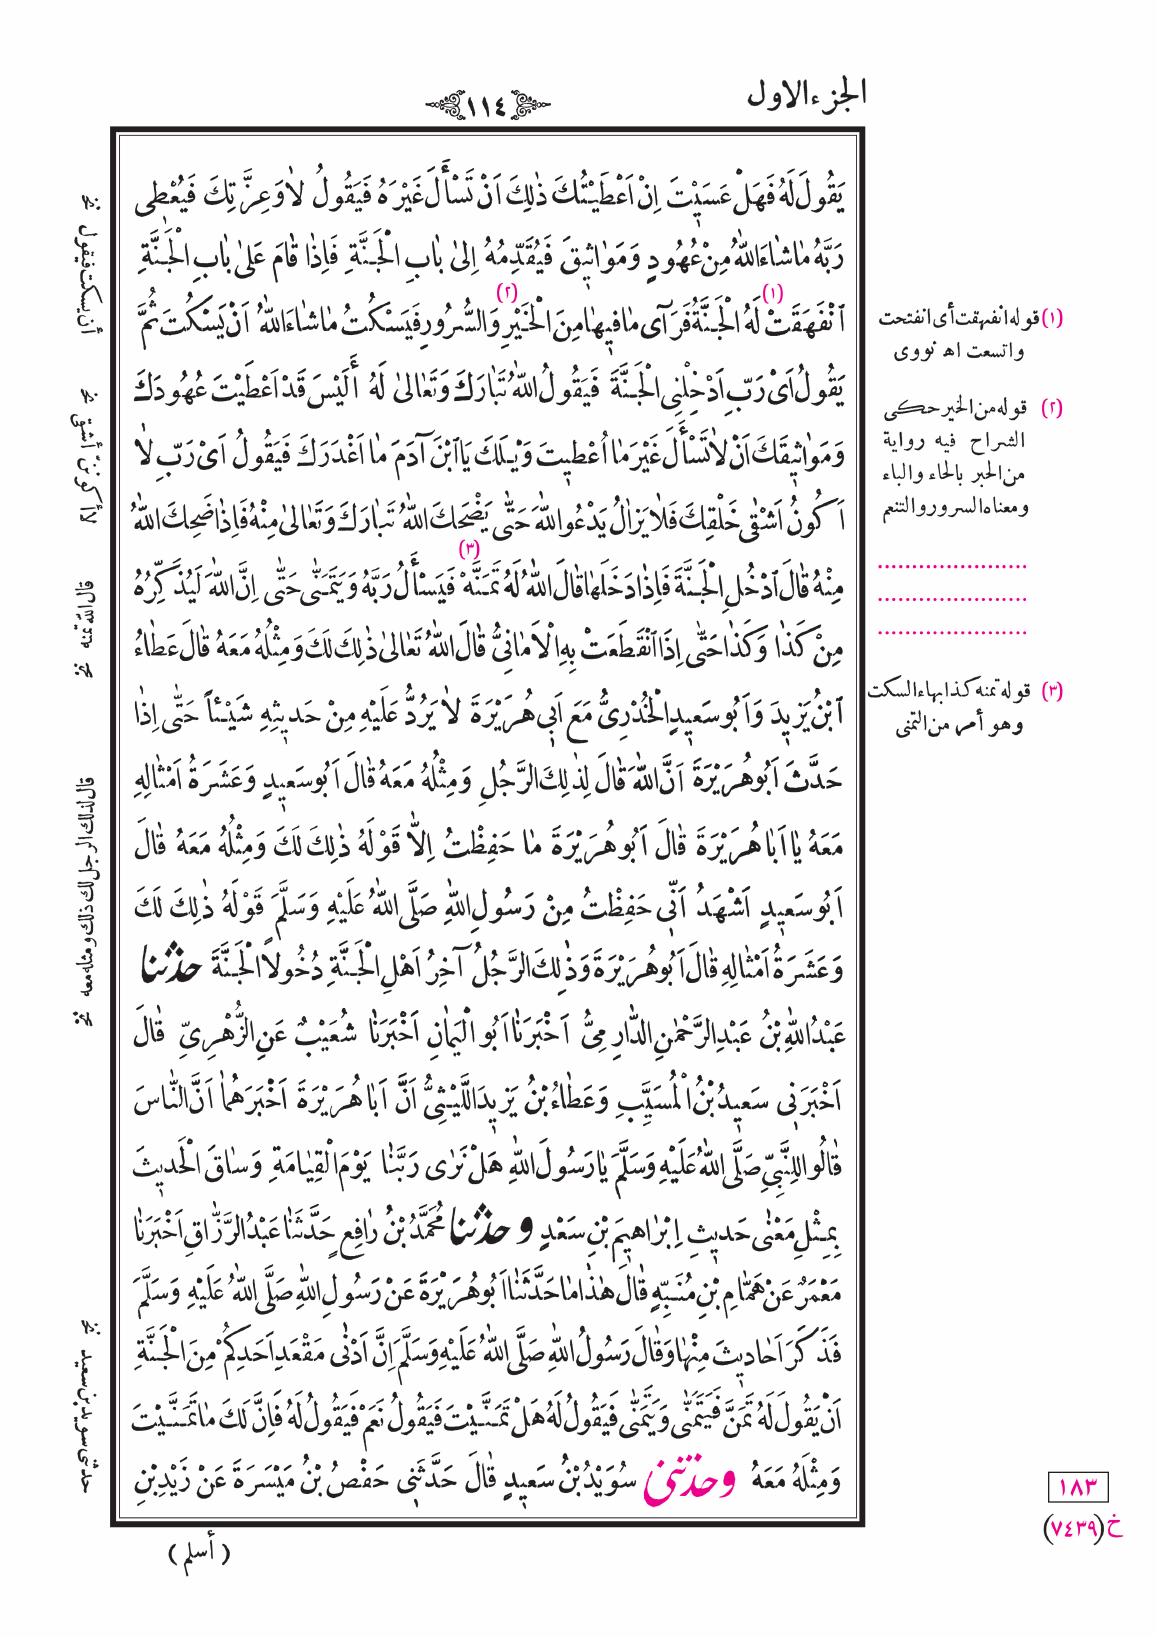 الجزء الاول
١١٤
يَقُولَ لَهُ فَهَلْ عَسَيْتَ اِنْ اَعْطَيْتُكَ ذٰلِكَ اَنْ تَسْأَلَ غَيْرَهُ فَيَقُولُ لاٰ وَعِزَّتِكَ فَيُعْطِى
رَبَّهُ مٰاشٰاءَ اللّٰهُ مِنْ عُهُودٍ وَمَوٰاثِيقَ فَيُقَدِّمُهُ اِلىٰ بٰابِ الْجَنَّةِ فَاِذٰا قٰامَ عَلىٰ بٰابِ الْجَنَّةِ
اَنْفَهَقَتْ (١) لَهُ الْجَنَّةُ فَرَآى مٰا فيهٰا مِنَ الْخَيْرِ (٢) وَالسُّرُورِ فَيَسْكُتُ مٰاشٰاءَ اللّٰهُ اَنْ يَسْكُتَ ثُمَّ
يَقُولُ اَىْ رَبِّ اَدْخِلْنِى الْجَنَّةَ فَيَقُولُ اللّٰهُ تَبٰارَكَ وَتَعٰالىٰ لَهُ أَلَيْسَ قَدْ اَعْطَيْتَ عُهُودَكَ
وَمَوٰاثِيقَكَ اَنْ لاٰ تَسْأَلَ غَيْرَ مٰا اُعْطِيتَ وَيْلَكَ يَا ابْنَ آدَمَ مٰا اَغْدَرَكَ فَيَقُولُ اَىْ رَبِّ لاٰ
اَكُونُ اَشْقٰى خَلْقِكَ فَلاٰ يَزٰالُ يَدْعُو اللّٰهَ حَتّٰى يَضْحَكَ اللّٰهُ تَبٰارَكَ وَتَعٰالىٰ مِنْهُ فَاِذٰا ضَحِكَ اللّٰهُ
مِنْهُ قٰالَ اَدْخُلِ الْجَنَّةَ فَاِذٰا دَخَلَهٰا قٰالَ اللّٰهُ لَهُ تَمَنَّهْ (٣) فَيَسْأَلُ رَبَّهُ وَيَتَمَنّٰى حَتّٰى اِنَّ اللّٰهَ لَيُذَكِّرُهُ
مِنْ كَذٰا وَكَذٰا حَتّٰى اِذَا انْقَطَعَتْ بِهِ الْاَمٰانِىُّ قٰالَ اللّٰهُ تَعٰالىٰ ذٰلِكَ لَكَ وَمِثْلُهُ مَعَهُ قٰالَ عَطٰاءُ
اَبْنُ يَزِيدَ وَاَبُو سَعيدٍ الْخُدْرِىُّ مَعَ اَبى هُرَيْرَةَ لاٰ يَرُدُّ عَلَيْهِ مِنْ حَديثِهِ شَيْئاً حَتّٰى اِذٰا
حَدَّثَ اَبُو هُرَيْرَةَ اَنَّ اللّٰهَ قٰالَ لِذٰلِكَ الرَّجُلِ وَمِثْلُهُ مَعَهُ قٰالَ اَبُو سَعيدٍ وَعَشَرَةُ اَمْثٰالِهِ
مَعَهُ يٰا اَبٰا هُرَيْرَةَ قٰالَ اَبُو هُرَيْرَةَ مٰا حَفِظْتُ اِلاّٰ قَوْلَهُ ذٰلِكَ لَكَ وَمِثْلُهُ مَعَهُ قٰالَ
اَبُو سَعيدٍ اَشْهَدُ اَنّى حَفِظْتُ مِنْ رَسُولِ اللّٰهِ صَلَّى اللّٰهُ عَلَيْهِ وَسَلَّمَ قَوْلَهُ ذٰلِكَ لَكَ
وَعَشَرَةُ اَمْثٰالِهِ قٰالَ اَبُو هُرَيْرَةَ وَذٰلِكَ الرَّجُلُ آخِرُ اَهْلِ الْجَنَّةِ دُخُولاً الْجَنَّةَ حدّثنا
عَبْدُ اللّٰهِ بْنُ عَبْدِ الرَّحْمٰنِ الدّٰارِمِىُّ اَخْبَرَنٰا اَبُو الْيَمٰانِ اَخْبَرَنٰا شُعَيْبٌ عَنِ الزُّهْرِىِّ قٰالَ
اَخْبَرَنى سَعيدُ بْنُ الْمُسَيَّبِ وَعَطٰاءُ بْنُ يَزيدَ اللَّيْثِىُّ اَنَّ اَبٰا هُرَيْرَةَ اَخْبَرَهُمٰا اَنَّ النّٰاسَ
قٰالُوا لِلنَّبِىِّ صَلَّى اللّٰهُ عَلَيْهِ وَسَلَّمَ يٰا رَسُولَ اللّٰهِ هَلْ نَرٰى رَبَّنٰا يَوْمَ الْقِيٰامَةِ وَسٰاقَ الْحَديثَ
بِمِثْلِ مَعْنٰى حَديثِ اِبْرٰاهيمَ بْنِ سَعْدٍ و حدّثنا مُحَمَّدُ بْنُ رٰافِعٍ حَدَّثَنٰا عَبْدُ الرَّزّٰاقِ اَخْبَرَنٰا
مَعْمَرٌ عَنْ هَمّٰامِ بْنِ مُنَبِّهٍ قٰالَ هٰذٰا مٰا حَدَّثَنٰا اَبُو هُرَيْرَةَ عَنْ رَسُولِ اللّٰهِ صَلَّى اللّٰهُ عَلَيْهِ وَسَلَّمَ
فَذَكَرَ اَحٰاديثَ مِنْهٰا وَقٰالَ رَسُولُ اللّٰهِ صَلَّى اللّٰهُ عَلَيْهِ وَسَلَّمَ اِنَّ اَدْنٰى مَقْعَدِ اَحَدِكُمْ مِنَ الْجَنَّةِ
اَنْ يَقُولَ لَهُ تَمَنَّ فَيَتَمَنّٰى وَيَتَمَنّٰى فَيَقُولُ لَهُ هَلْ تَمَنَّيْتَ فَيَقُولُ نَعَمْ فَيَقُولُ لَهُ فَاِنَّ لَكَ مٰا تَمَنَّيْتَ
وَمِثْلَهُ مَعَهُ وحدّثنى سُوَيْدُ بْنُ سَعيدٍ قٰالَ حَدَّثَنى حَفْصُ بْنُ مَيْسَرَةَ عَنْ زَيْدِ بْنِ
( أسلم )
(١) قوله انفهقت أى انفتحت
واتسعت اھ نووى
(٢) قوله من الخير حكى
الشراح فيه رواية
من الحبر بالحاء والباء
ومعناه السرور والتنعم
(٣) قوله تمنه كذا بهاء السكت
وهو أمر من التمنى
١٨٣
خ (٧٤٣٩)
أن يسكت فيقول نخ
لأكوننّ أشقى نخ
قال اللّه تمنه نخ
قال لذلك الرجل لك ذلك ومثله معه نخ
حدثنى سويد بن سعيد نخ